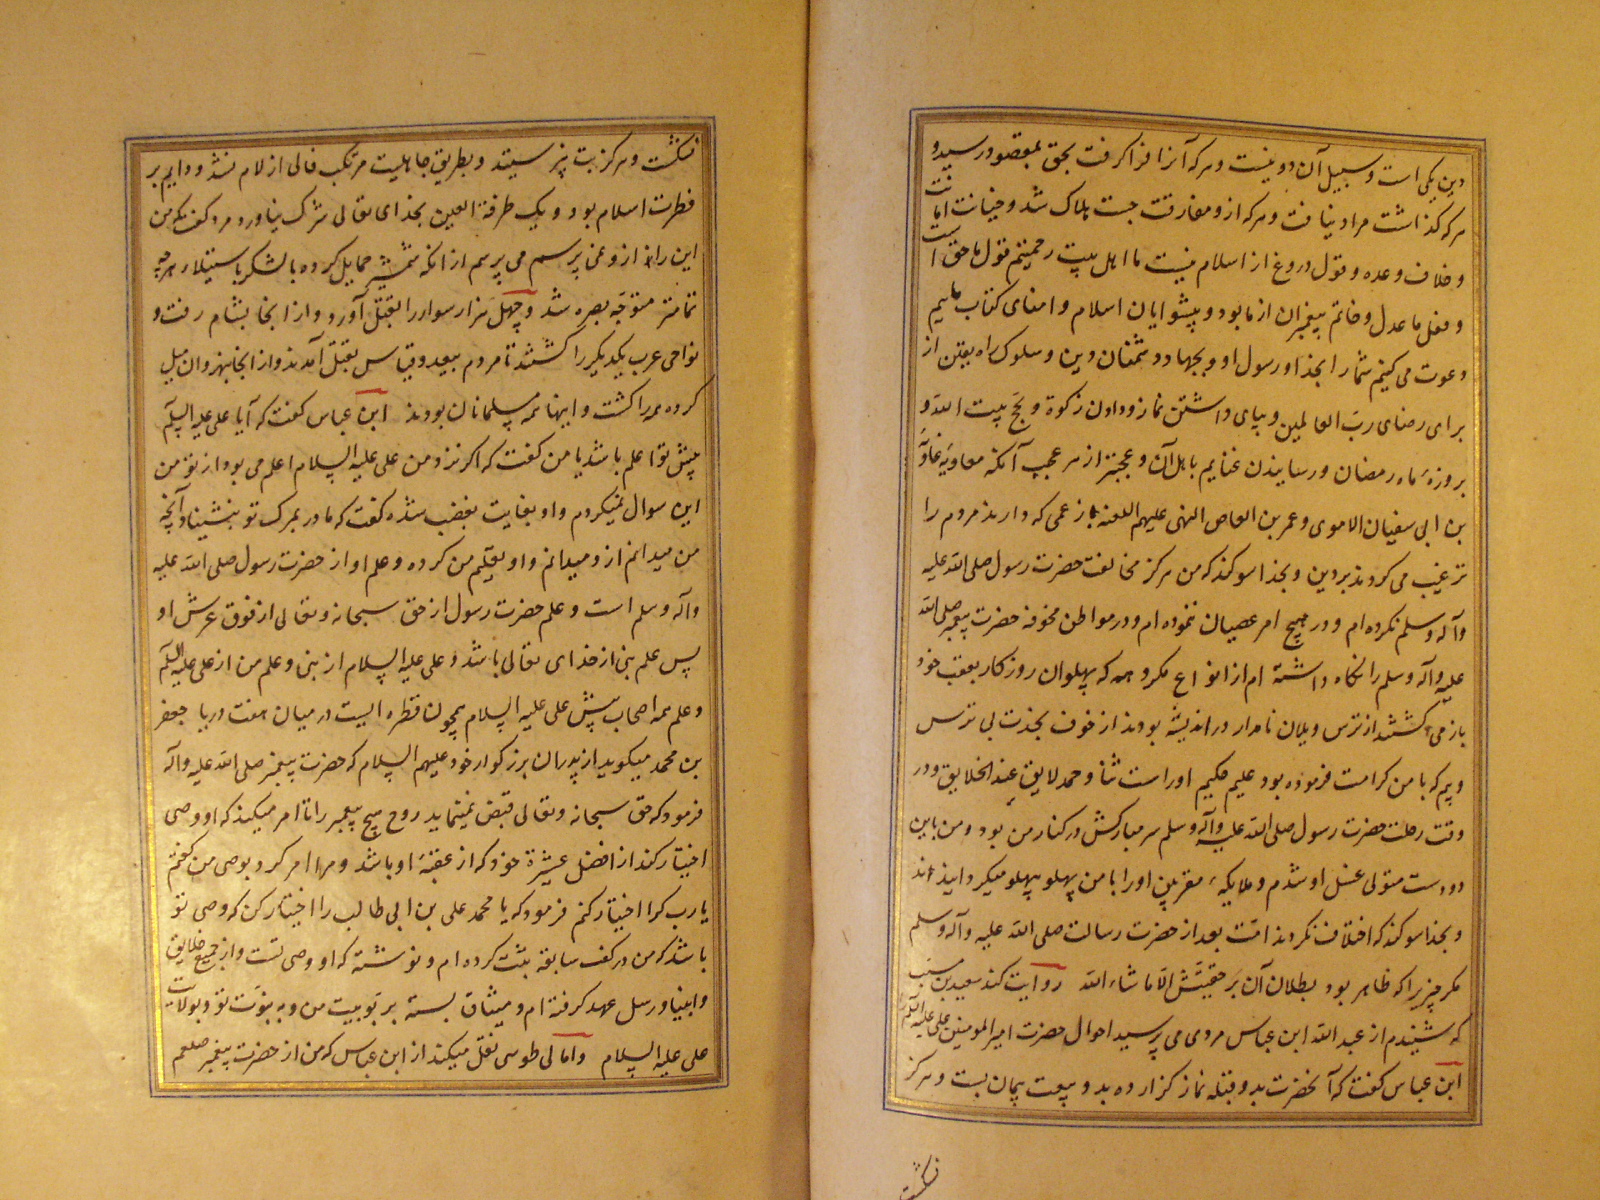 دین یکی است و سبیل آن دو نیست و هرکه آنرا فرا گرفت بحق بمقصود رسید و
هرکه گذاشت مراد نیافت و هرکه ازو مفارقت جست هلاک شد و خیانت امانت
و خلاف وعده و قول دروغ از اسلام نیست ما اهل بیت رحمتیم قول ما حق است
و فعل ما عدل و خاتم پیغمبران از ما بود و پیشوایان اسلام و امنای کتاب ماییم
دعوت می کنیم شما را بخدا و رسول او و بجهاد دشمنان دین و سلوک راه یقین از
برای رضای رب العالمین و بپای داشتن نماز و دادن زکوة و بحج بیت الله و
بروزهٔ ماه رمضان و رسانیدن غنایم باهل آن و عجبتر از هر عجب آنکه معاویه غاویه
بن ابی سفیان الاموی و عمر بن العاص علیهم اللعنه باز عمی که دارند مردم را
ترغیب می کردند بر دین و بخدا سوگند که من هرگز مخالفت حضرت رسول صلی الله علیه
وآله وسلم نکرده ام و در هیچ امر عصیان ننموده ام و در مواطن مخوفه حضرت پیغمبر صلی الله
علیه وآله وسلم را نگاه داشته ام از انواع مکروه که پهلوان روزکار بعقب خود
باز می گشتند از ترس و یلان نامدار در اندیشه بودند از خوف بخدت بی ترس
وبیم که با من کرامت فرموده بود علیم حکیم اوراست ثنا و حمد لایق عند الخلایق و در
وقت رحلت حضرت رسول صلی الله علیه وآله وسلم سر مبارکش در کنار من بود و من باین
دو دست متولی غسل او شدم و ملایکهٔ مقربین او را با من پهلو بپهلو میگردانیده اند
و بخدا سوگند که اختلاف نکردند امت بعد از حضرت رسالت صلی الله علیه وآله وسلم
مگر چیزیرا که ظاهر بود بطلان آن بر حقیتش الا ما شاء الله روایت کند سعید بن مسیب
که شنیدم از عبد الله ابن عباس مردی می پرسید احوال حضرت امیر المومنین علی علیه السلم
ابن عباس گفت که آنحضرت بدو قبله نماز گزارده بدو بیعت پیمان بست و هرگز
نگشت
نگشت و هرگز بت نپرستید و بطریق جاهلیت مرتکب فالی از لام نشد و دایم بر
فطرت اسلام بود و یک طرفة العین بخدای تعالی شرک نیاورد مرد گفت که من
این را از و نمی پرسم می پرسم از آنکه شمشیر حمایل کرده با لشکر با ستیلا هرچه
تمامتر متوجه بصره شد و چهل هزار سوار را بقتل آورد و از انجا بشام رفت و
نواحی عرب یکدیگر را کشتند تا مردم بیعد و قیاس بقتل آمدند و از انجا بنهروان میل
کرده همه را کشت و اینها همه مسلمانان بودند ابن عباس گفت که آیا علی علیه السلم
پیش تو اعلم باشد یا من گفت که اگر نزد من علی علیه السلام اعلم می بود از تو من
این سوال نمیکردم و او بغایت بغضب شده گفت که مادر بمرگ تو بنشیناد آنچه
من میدانم ازو میدانم و او تعلیم من کرده و علم او از حضرت رسول صلی الله علیه
وآله وسلم است و علم حضرت رسول از حق سبحانه و تعالی از فوق عرش او
پس علم نبی از خدای تعالی باشد و علی علیه السلام از نبی و علم من از علی علیه السلم
و علم همه اصحاب پیش علی علیه السلام همچون قطره ایست در میان هفت دریا جعفر
بن محمد میگوید از پدران بزرگوار خود علیهم السلام که حضرت پیغمبر صلی الله علیه وآله
فرمود که حق سبحانه و تعالی قبض نمینماید روح هیچ پیغمبر را تا امر میکند که او وصی
اختیار کند از افضل عشیرة خود که از عقبهٔ او باشد و مرا امر کرد بوصی من گفتم
یا رب کرا اختیار کنم فرمود که یا محمد علی بن ابی طالب را اختیار کن که وصی تو
باشد که من در کتب سابقه ثبت کرده ام و نوشته که او وصی تست و از جمیع خلایق
و انبیا و رسل عهد گرفته ام و میثاق بسته بر بوبیت من و به نبوت تو و بولایت
علی علیه السلام و امالی طوسی نقل میکند از ابن عباس که من از حضرت پیغمبر صلعم